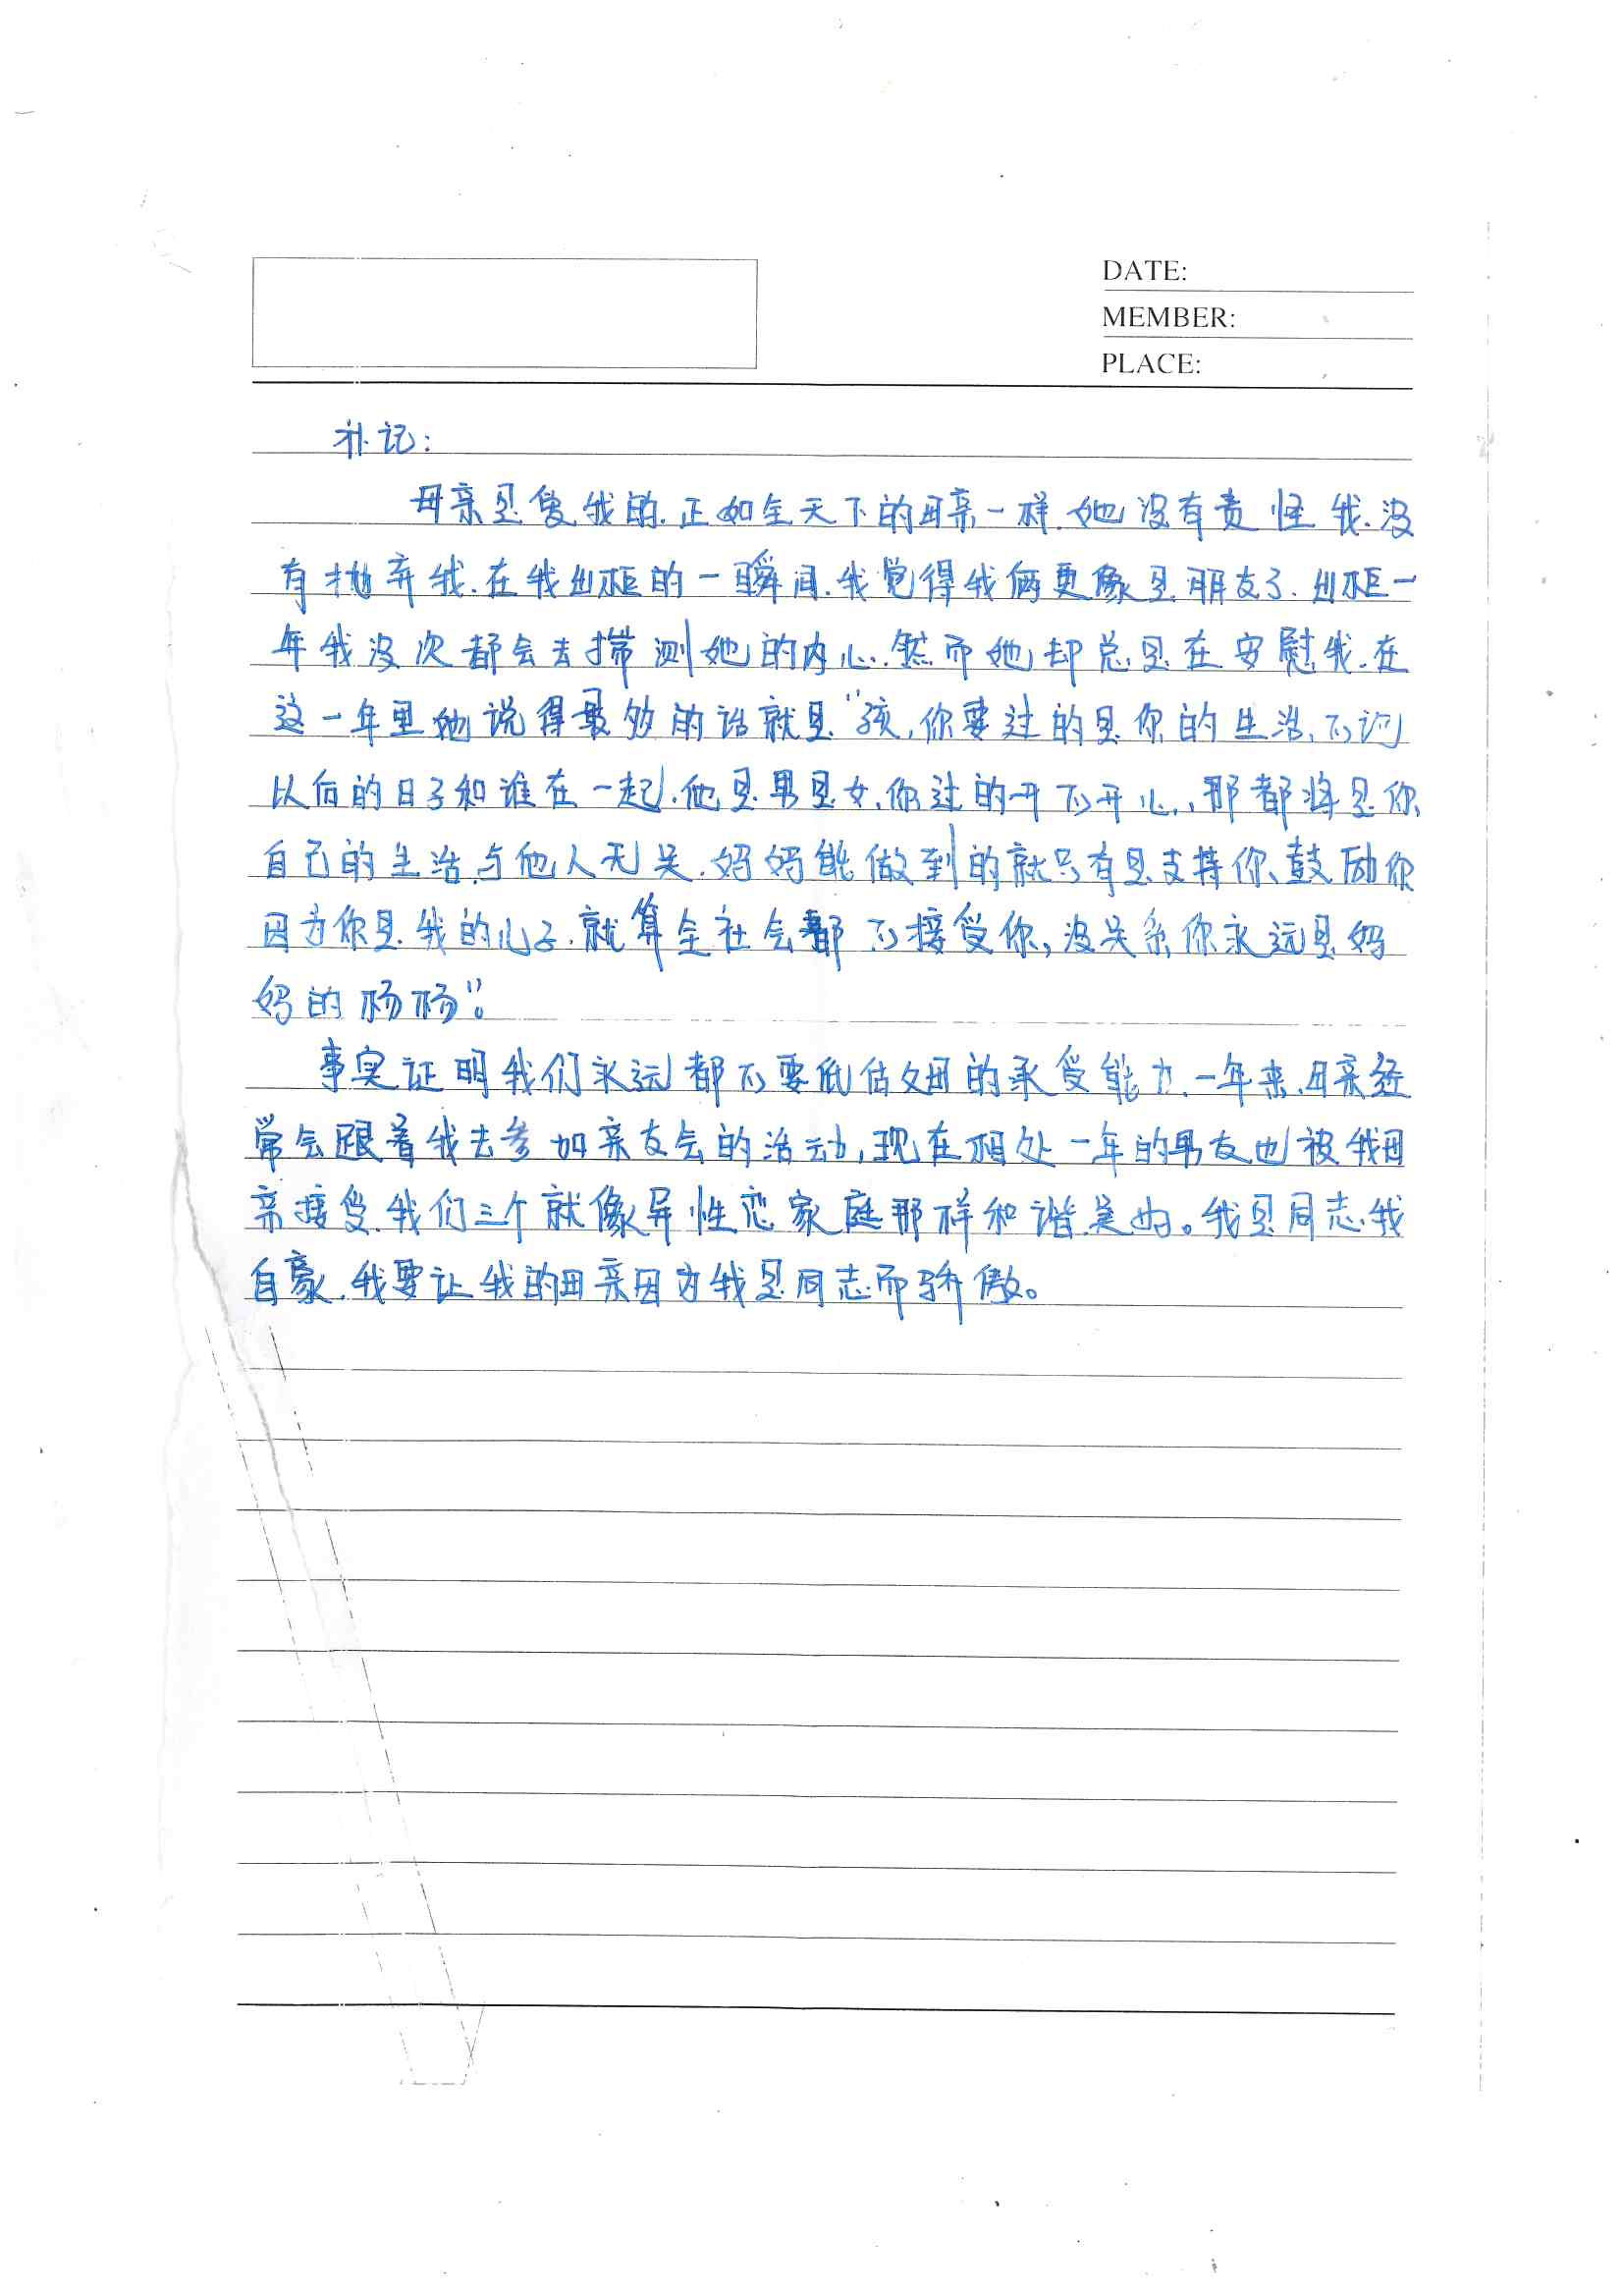 DATE:
MEMBER:
PLACE:
补记:
母亲是爱我的.正如全天下的母亲一样.她没有责怪我.没
有抛弃我.在我出柜的一瞬间.我觉得我俩更像是朋友了.出柜一
年我没次都会去揣测她的内心.然而她却总是在安慰我.在
这一年里她说得最多的话就是"孩,你要过的是你的生活,不论
以后的日子和谁在一起.他是男是女.你过的开不开心,那都将是你
自己的生活与他人无关.妈妈能做到的就只有是支持你、鼓励你
因为你是我的儿子.就算全社会都不接受你,没关系你永远是妈
妈的杨杨"。
事实证明我们永远都不要低估父母的承受能力.一年来.母亲经
常会跟着我去参加亲友会的活动,现在相处一年的男友也被我母
亲接受.我们三个就像异性恋家庭那样和谐.美好。我是同志.我
自豪.我要让我的母亲因为我是同志而骄傲。